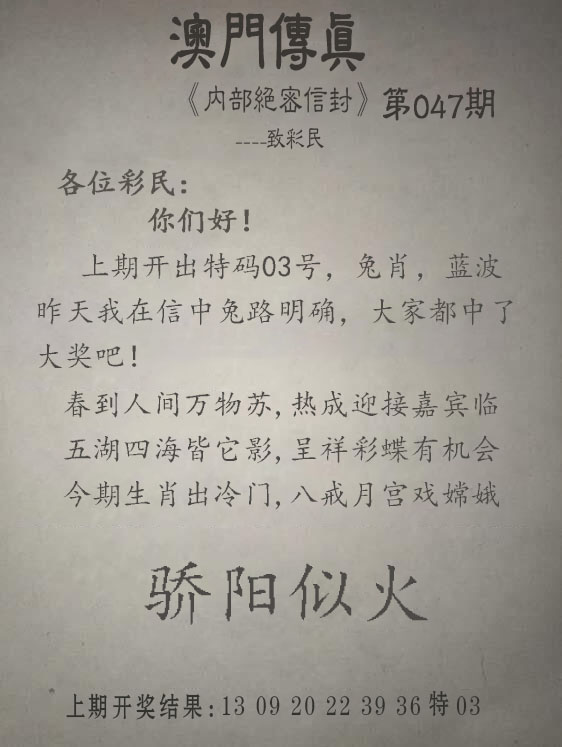 澳門傳真
《内部絕密信封》第047期
----致彩民
各位彩民：
你们好！
上期开出特码03号，兔肖，蓝波
昨天我在信中兔路明确，大家都中了
大奖吧！
春到人间万物苏,热成迎接嘉宾临
五湖四海皆它影,呈祥彩蝶有机会
今期生肖出冷门,八戒月宫戏嫦娥
骄阳似火
上期开奖结果:13 09 20 22 39 36 特 03